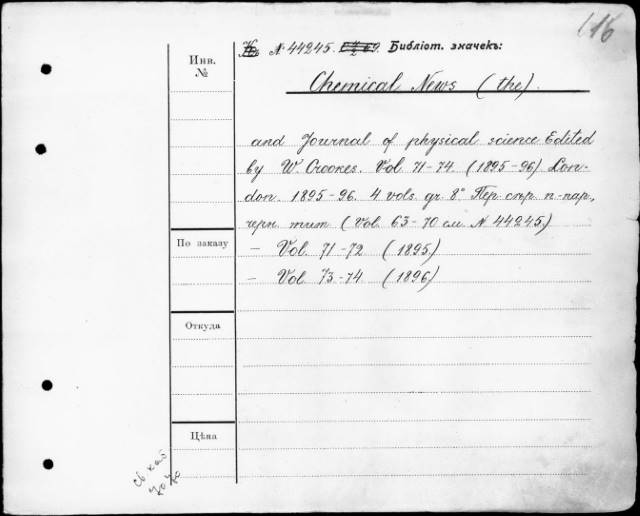 116
№ 44245. Библіот. значекъ:
Инв.
№
Chemical News (the).
and Journal of physical science. Edited
by W. Crookes. Vol. 71-74. (1895-96) Lon-
don. 1895-96. 4 vols. gr. 8° Пер. п-пар.,
черн. тит. (Vol. 63-70 см. № 44245.)
По заказу
— Vol. 71-72 (1895)
— Vol. 73-74 (1896)
Откуда
Цѣна